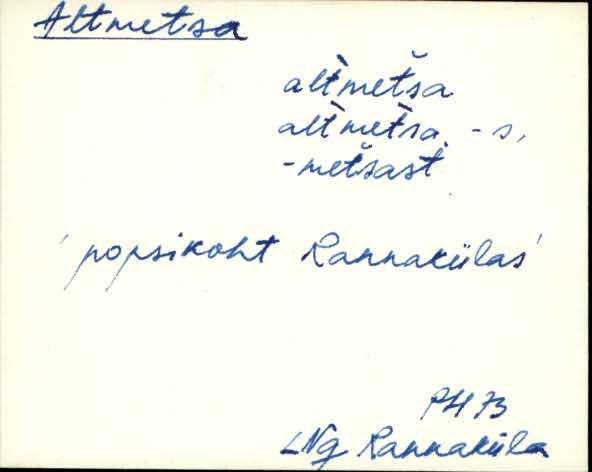 Altmetsa
alt`metša
alt`metsa, -s,
-metšast
'popsikoht Rannakülas'
PH 73
LNg Rannaküla